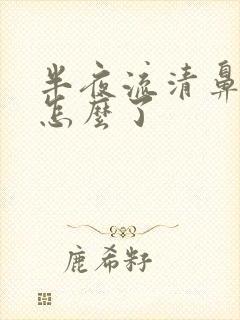 半夜流清鼻
怎麼了
鹿希籽